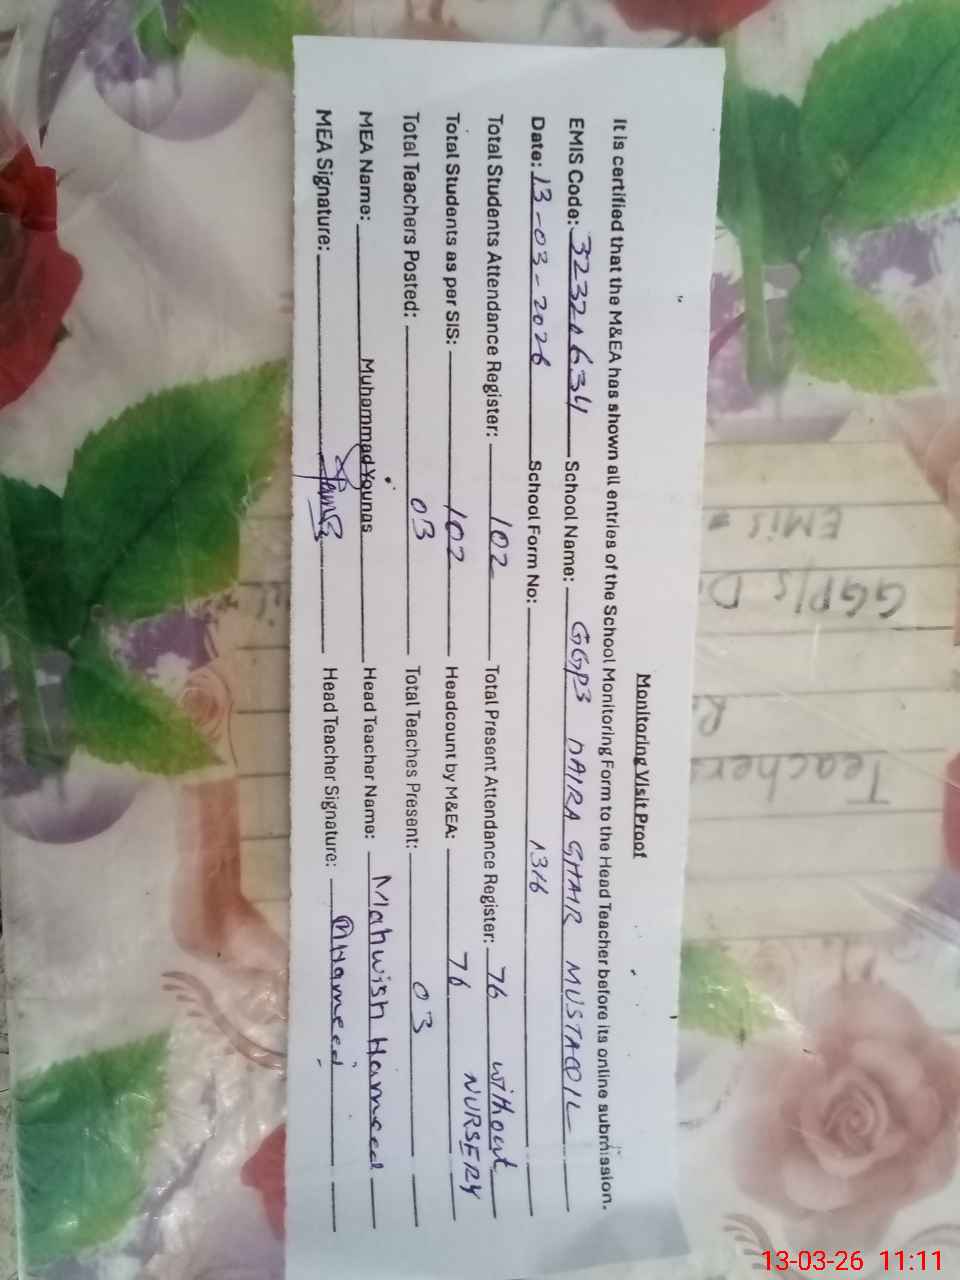 Monitoring Visit Proof
It is certified that the M&EA has shown all entries of the School Monitoring Form to the Head Teacher before its online submission.
EMIS Code: 32320634 School Name: GGPS DAIRA GHAIR MUSTAQIL
Date: 13-03-2026 School Form No: 1316
Total Students Attendance Register: 102 Total Present Attendance Register: 76 without
NURSERY
Total Students as per SIS: 102 Headcount by M&EA: 76
Total Teachers Posted: 03 Total Teaches Present: 03
MEA Name: Muhammad Younas Head Teacher Name: Mahwish Hameed
MEA Signature: Head Teacher Signature: MHameed
EMIS =
GGP/S
Teacher
13-03-26 11:11